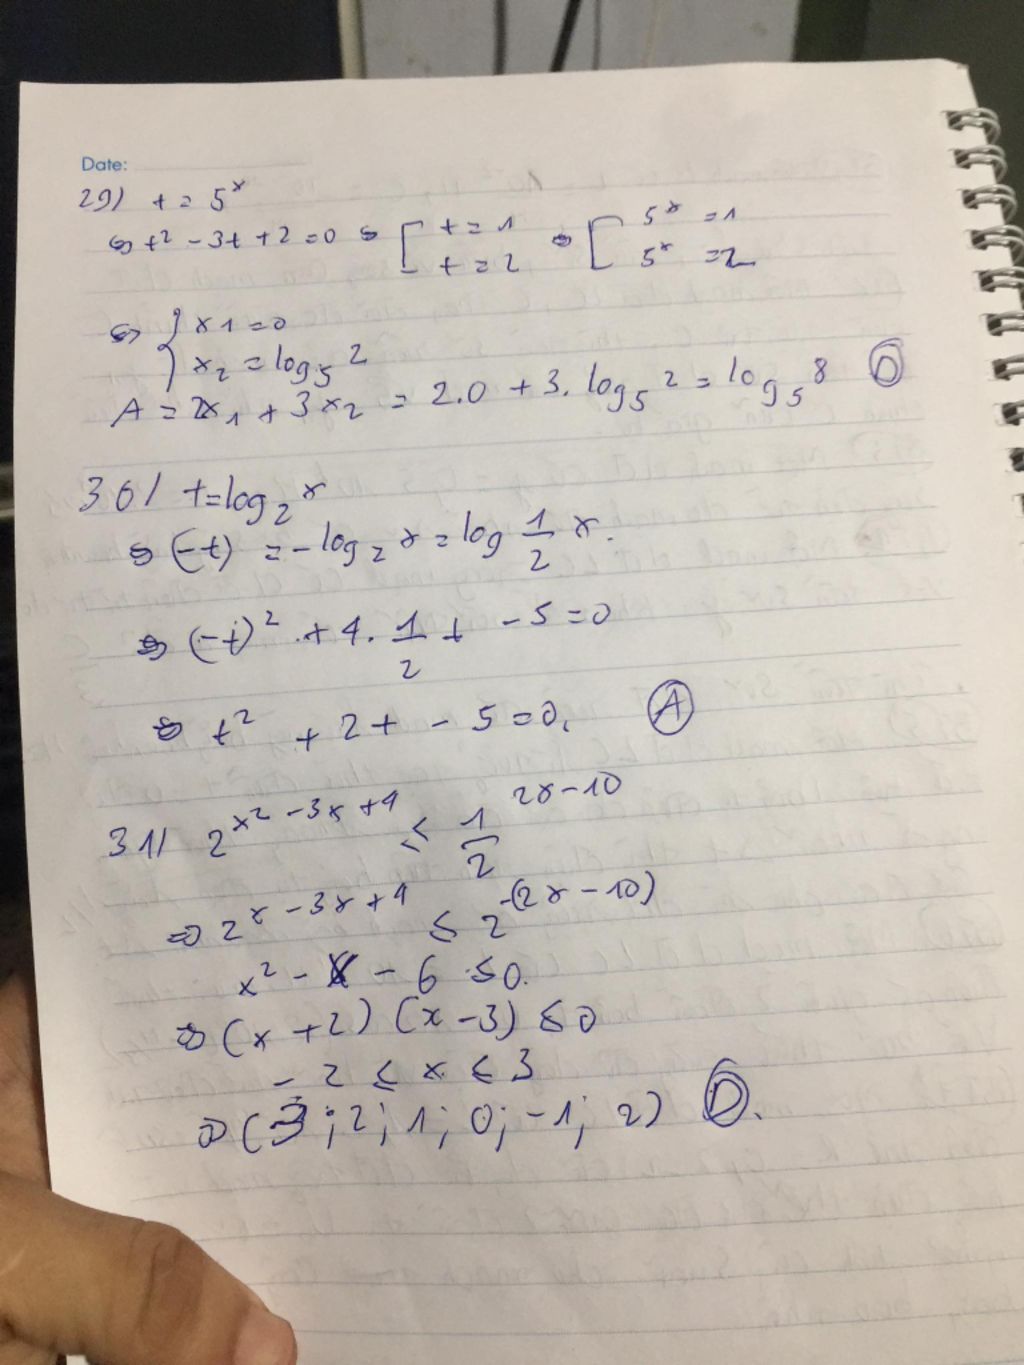 Date:
29) t = 5^x
⇔ t² - 3t + 2 = 0 ⇔ [ t = 1 ⇔ [ 5^x = 1
t = 2 5^x = 2
⇔ { x1 = 0
x₂ = log₅ 2
A = 2x₁ + 3x₂ = 2.0 + 3. log₅ 2 = log₅ 8 Ⓓ
30/ t = log₂ x
⇔ (-t) = - log₂ x = log 1/2 x.
⇔ (-t)² + 4. 1/2 t - 5 = 0
⇔ t² + 2t - 5 = 0. Ⓐ
31/ 2^(x² - 3x + 4) ≤ 1/2^(2x - 10)
⇒ 2^(x - 3x + 4) ≤ 2^-(2x - 10)
x² - x - 6 ≤ 0.
⇔ (x + 2) (x - 3) ≤ 0
- 2 ≤ x ≤ 3
⇒ (3; 2; 1; 0; -1; 2) Ⓓ.